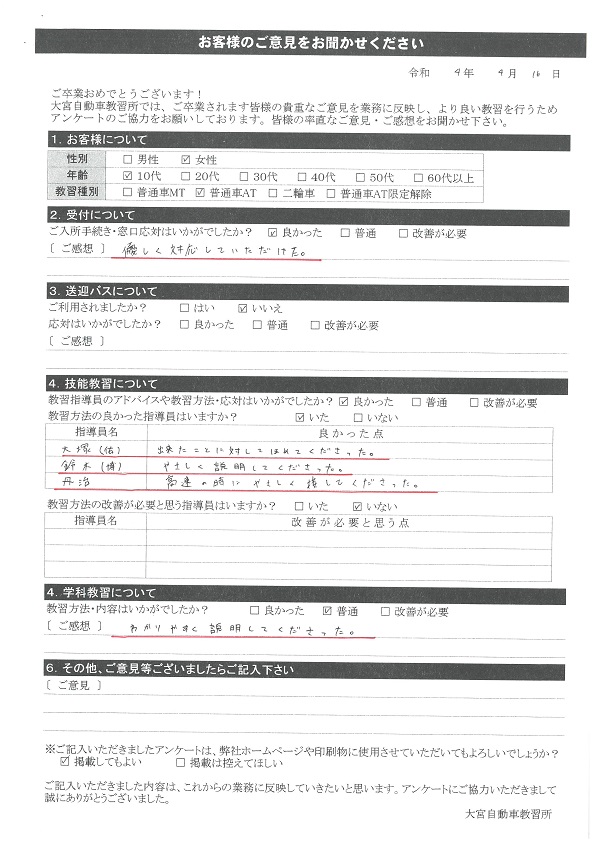 お客様のご意見をお聞かせください
令和 4年 9月 16日
ご卒業おめでとうございます！
大宮自動車教習所では、ご卒業されます皆様の貴重なご意見を業務に反映し、より良い教習を行うため
アンケートのご協力をお願いしております。皆様の率直なご意見・ご感想をお聞かせ下さい。
1. お客様について
性別 □ 男性 ☑ 女性
年齢 ☑ 10代 □ 20代 □ 30代 □ 40代 □ 50代 □ 60代以上
教習種別 □ 普通車MT ☑ 普通車AT □ 二輪車 □ 普通車AT限定解除
2. 受付について
ご入所手続き・窓口応対はいかがでしたか？ ☑ 良かった □ 普通 □ 改善が必要
[ ご感想 ] 優しく対応していただけた。
3. 送迎バスについて
ご利用されましたか？ □ はい ☑ いいえ
応対はいかがでしたか？ □ 良かった □ 普通 □ 改善が必要
[ ご感想 ]
4. 技能教習について
教習指導員のアドバイスや教習方法・応対はいかがでしたか？ ☑ 良かった □ 普通 □ 改善が必要
教習方法の良かった指導員はいますか？ ☑ いた □ いない
指導員名 良かった点
大塚(佑) 出来たことに対してほめてくださった。
鈴木(博) やさしく説明してくださった。
丹治 高速の時にやさしく接してくださった。
教習方法の改善が必要と思う指導員はいますか？ □ いた ☑ いない
指導員名 改善が必要と思う点
4. 学科教習について
教習方法・内容はいかがでしたか？ □ 良かった ☑ 普通 □ 改善が必要
[ ご感想 ] わかりやすく説明してくださった。
6. その他、ご意見等ございましたらご記入下さい
[ ご意見 ]
※ご記入いただきましたアンケートは、弊社ホームページや印刷物に使用させていただいてもよろしいでしょうか？
☑ 掲載してもよい □ 掲載は控えてほしい
ご記入いただきました内容は、これからの業務に反映していきたいと思います。アンケートにご協力いただきまして
誠にありがとうございました。
大宮自動車教習所